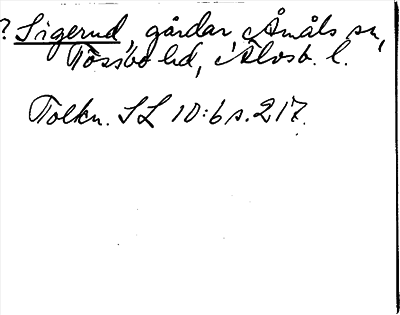 ? Sigerud, gårdar Åmåls sn,
Tössbo hd, Älvsb. l.
Tolkn. SL 10:6 s. 217.